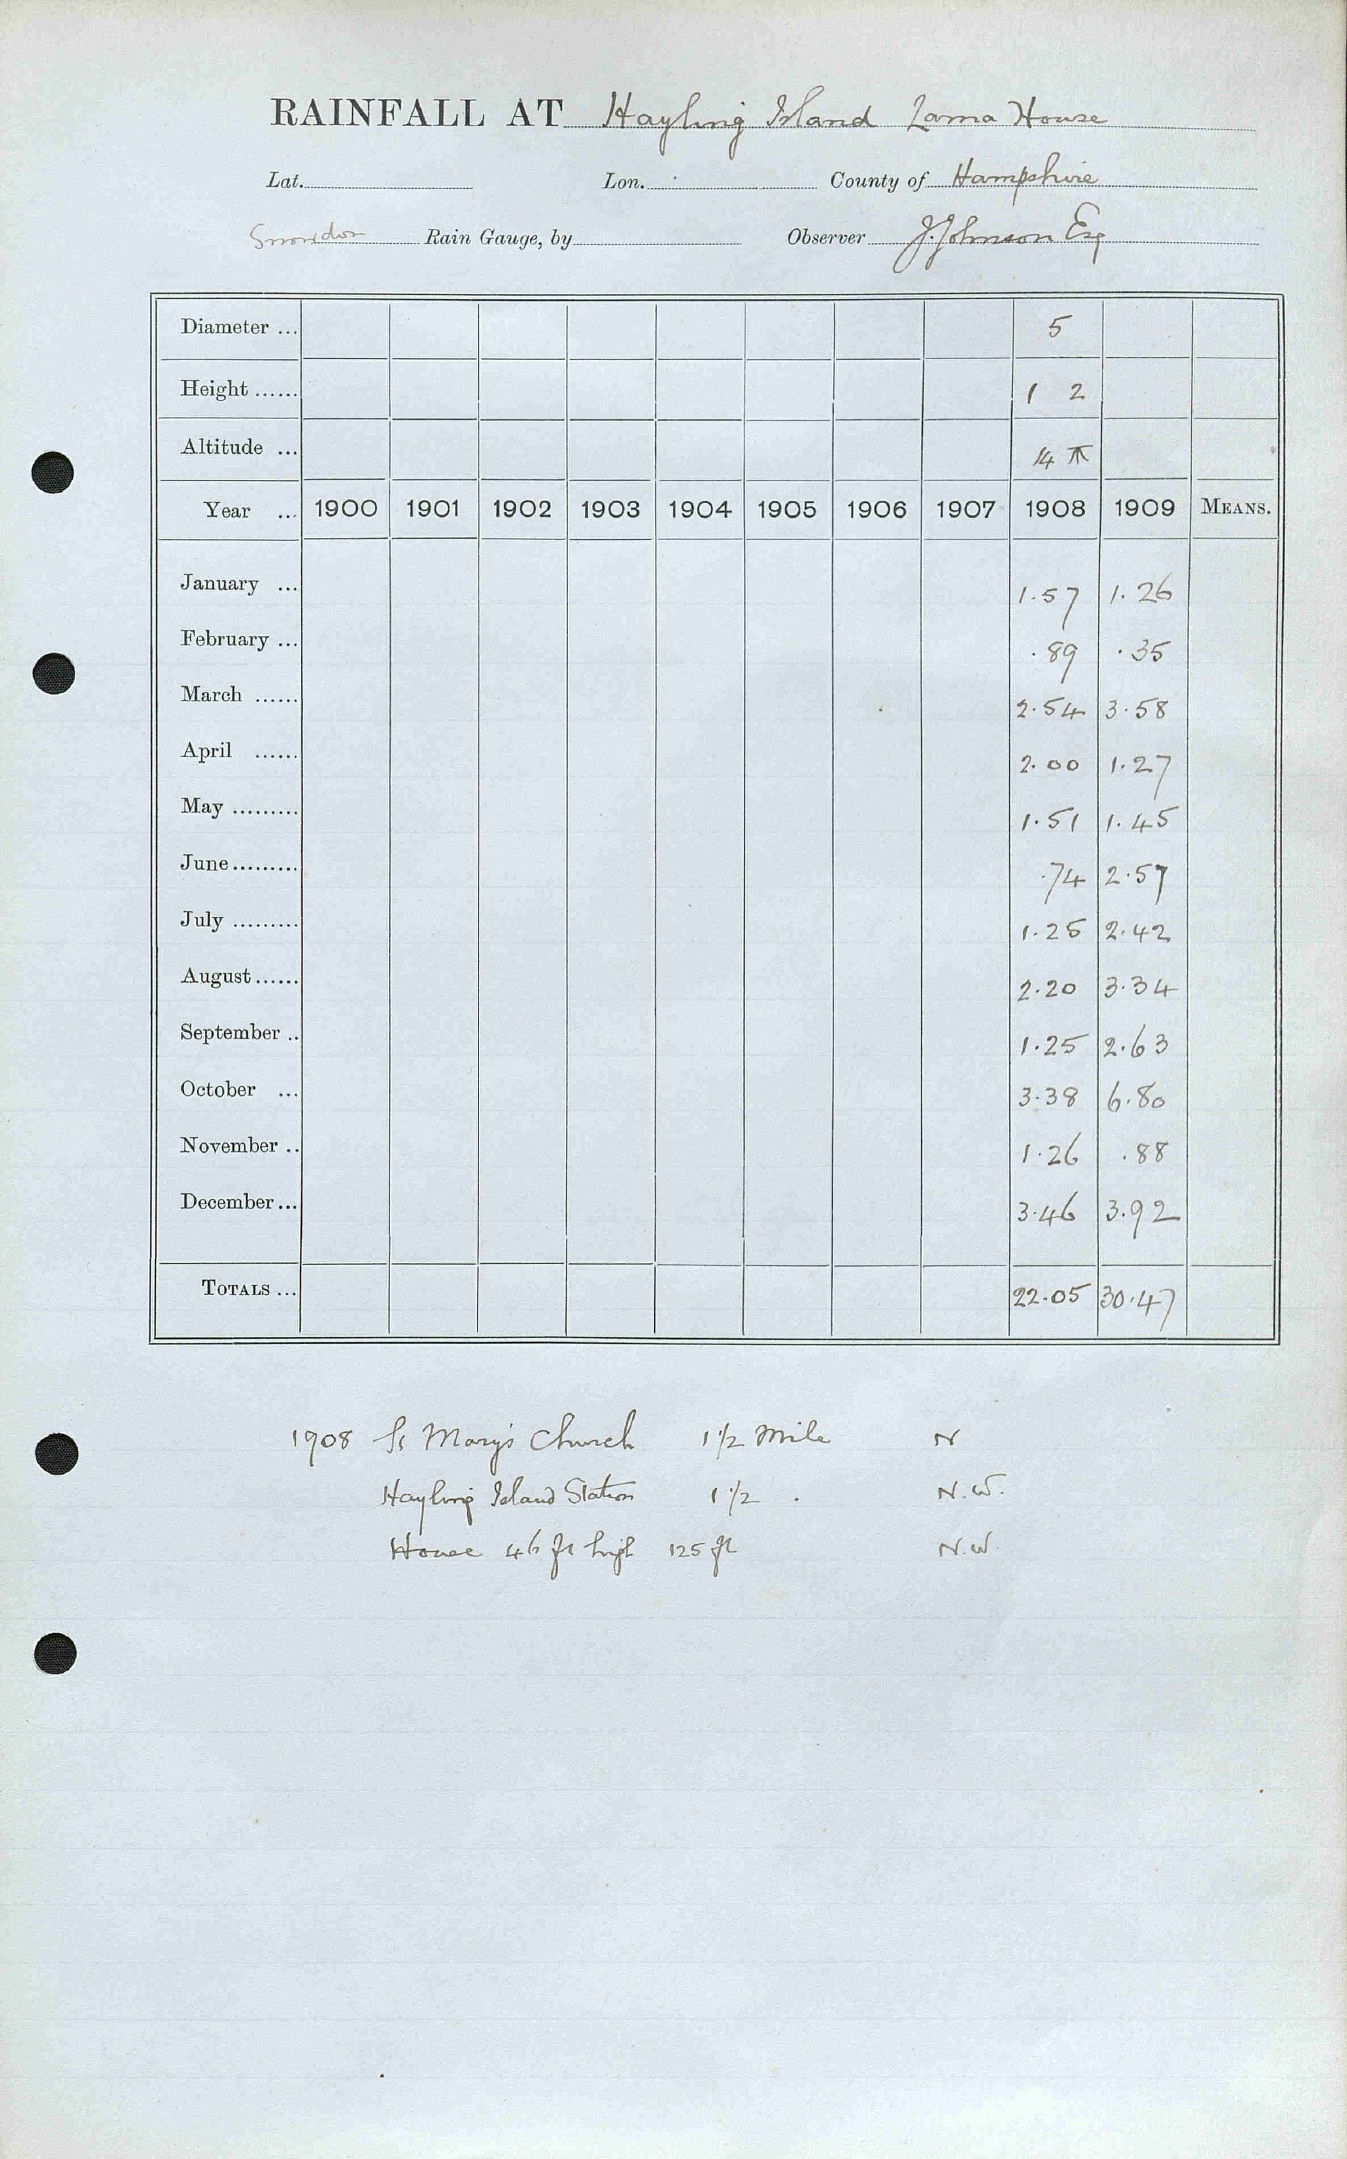 RAINFALL AT Hayling Island House
Lat. Lon. County of Hampshire
Snowdon Rain Gauge, by Observer J. Johnson Esq
Diameter ... 5
Height ...... 1 2
Altitude ... 14
Year ... 1900 1901 1902 1903 1904 1905 1906 1907 1908 1909 MEANS.
January ... 1.57 1.26
February ... .89 .35
March ...... 2.54 3.58
April ...... 2.00 1.27
May ......... 1.51 1.45
June ......... .74 2.57
July ......... 1.25 2.42
August ...... 2.20 3.34
September .. 1.25 2.63
October ... 3.38 6.80
November .. 1.26 .88
December ... 3.46 3.92
TOTALS ... 22.05 30.47
1908 St Mary's Church 1 1/2 Mile N
Hayling Island Station 1 1/2 . N.W.
House 46 ft high 125 ft N.W.